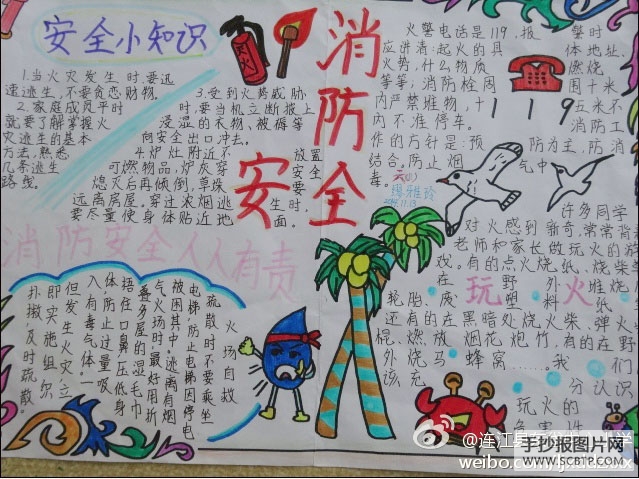 安全小知识
1.当火灾发生时,要迅
速逃生,不要贪恋财物。
2.家庭成员平时
就要了解掌握火
灾逃生的基本
方法,熟悉
几条逃生
路线。
3.受到火势威胁
时,要当机立断披上
浸湿的衣物、被褥等
向安全出口冲去。
4.炉灶附近不放置
可燃物品,炉灰穿安全
熄灭后再倾倒,草垛要
远离房屋。穿过浓烟逃生时,
要尽量使身体贴近地面。
消防安全
火警电话是119,报警时
应讲清起火的具体地址、
火势,什么物质燃烧
等等;消防栓周围十米
内严禁堆物,十五米不
内不准停车。消防工
119
作的方针是:预防为主,防消
结合。防止烟气中
毒。
六(1)
消防安全人人有责
火场自救
疏散时不要乘坐
电梯,防止电梯因停电
被困其中。逃离有烟
气火场时,最好用折
叠多层的湿毛巾
捂住口鼻,压低身
体防止过量吸
入有毒气体。一
但发生火灾,立
即实施组织
扑救,及时疏散。
许多同学
对火感到新奇,常常背着
老师和家长做玩火的游
戏。有的点火烧纸、烧柴
在野外堆烧
玩火
轮胎、废塑料纸
还有的在黑暗处烧火柴,弹火
棍、燃放烟花炮竹,有的在野
外烧马蜂窝……我们
该充分认识
玩火的
危害性
@连江县
weibo.com
手抄报图片网
WWW.SCBTP.COM